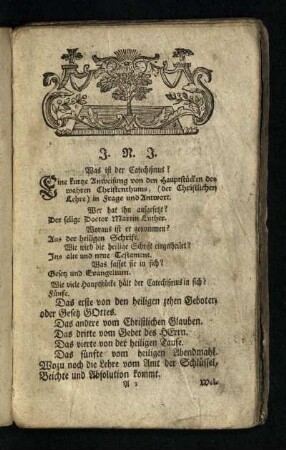 J. N. J.
Was ist der Catechismus?
Eine kurtze Anweisung von den Hauptstücken des
wahren Christenthums, (der Christlichen
Lehre) in Frage und Antwort.
Wer hat ihn aufgesetzt?
Der selige Doctor Martin Luther.
Woraus ist er genommen?
Aus der heiligen Schrift.
Wie wird die heilige Schrift eingetheilet?
Ins alte und neue Testament.
Was fasset sie in sich?
Gesetz und Evangelium.
Wie viele Hauptstücke hält der Catechismus in sich?
Fünfe.
Das erste von den heiligen zehen Geboten
oder Gesetz GOttes.
Das andere vom Christlichen Glauben.
Das dritte vom Gebet des HErrn.
Das vierte von der heiligen Taufe.
Das fünfte vom heiligen Abendmahl.
Wozu noch die Lehre vom Amt der Schlüssel,
Beichte und Absolution kommt.
A 2